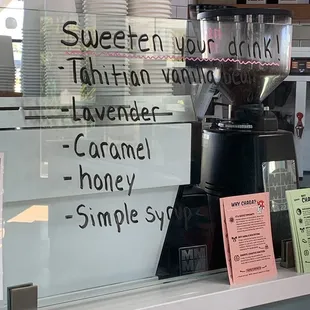 Sweeten your drink!
- Tahitian vanilla bean
- Lavender
- Caramel
- honey
- Simple syrup
WHY CHAGA?